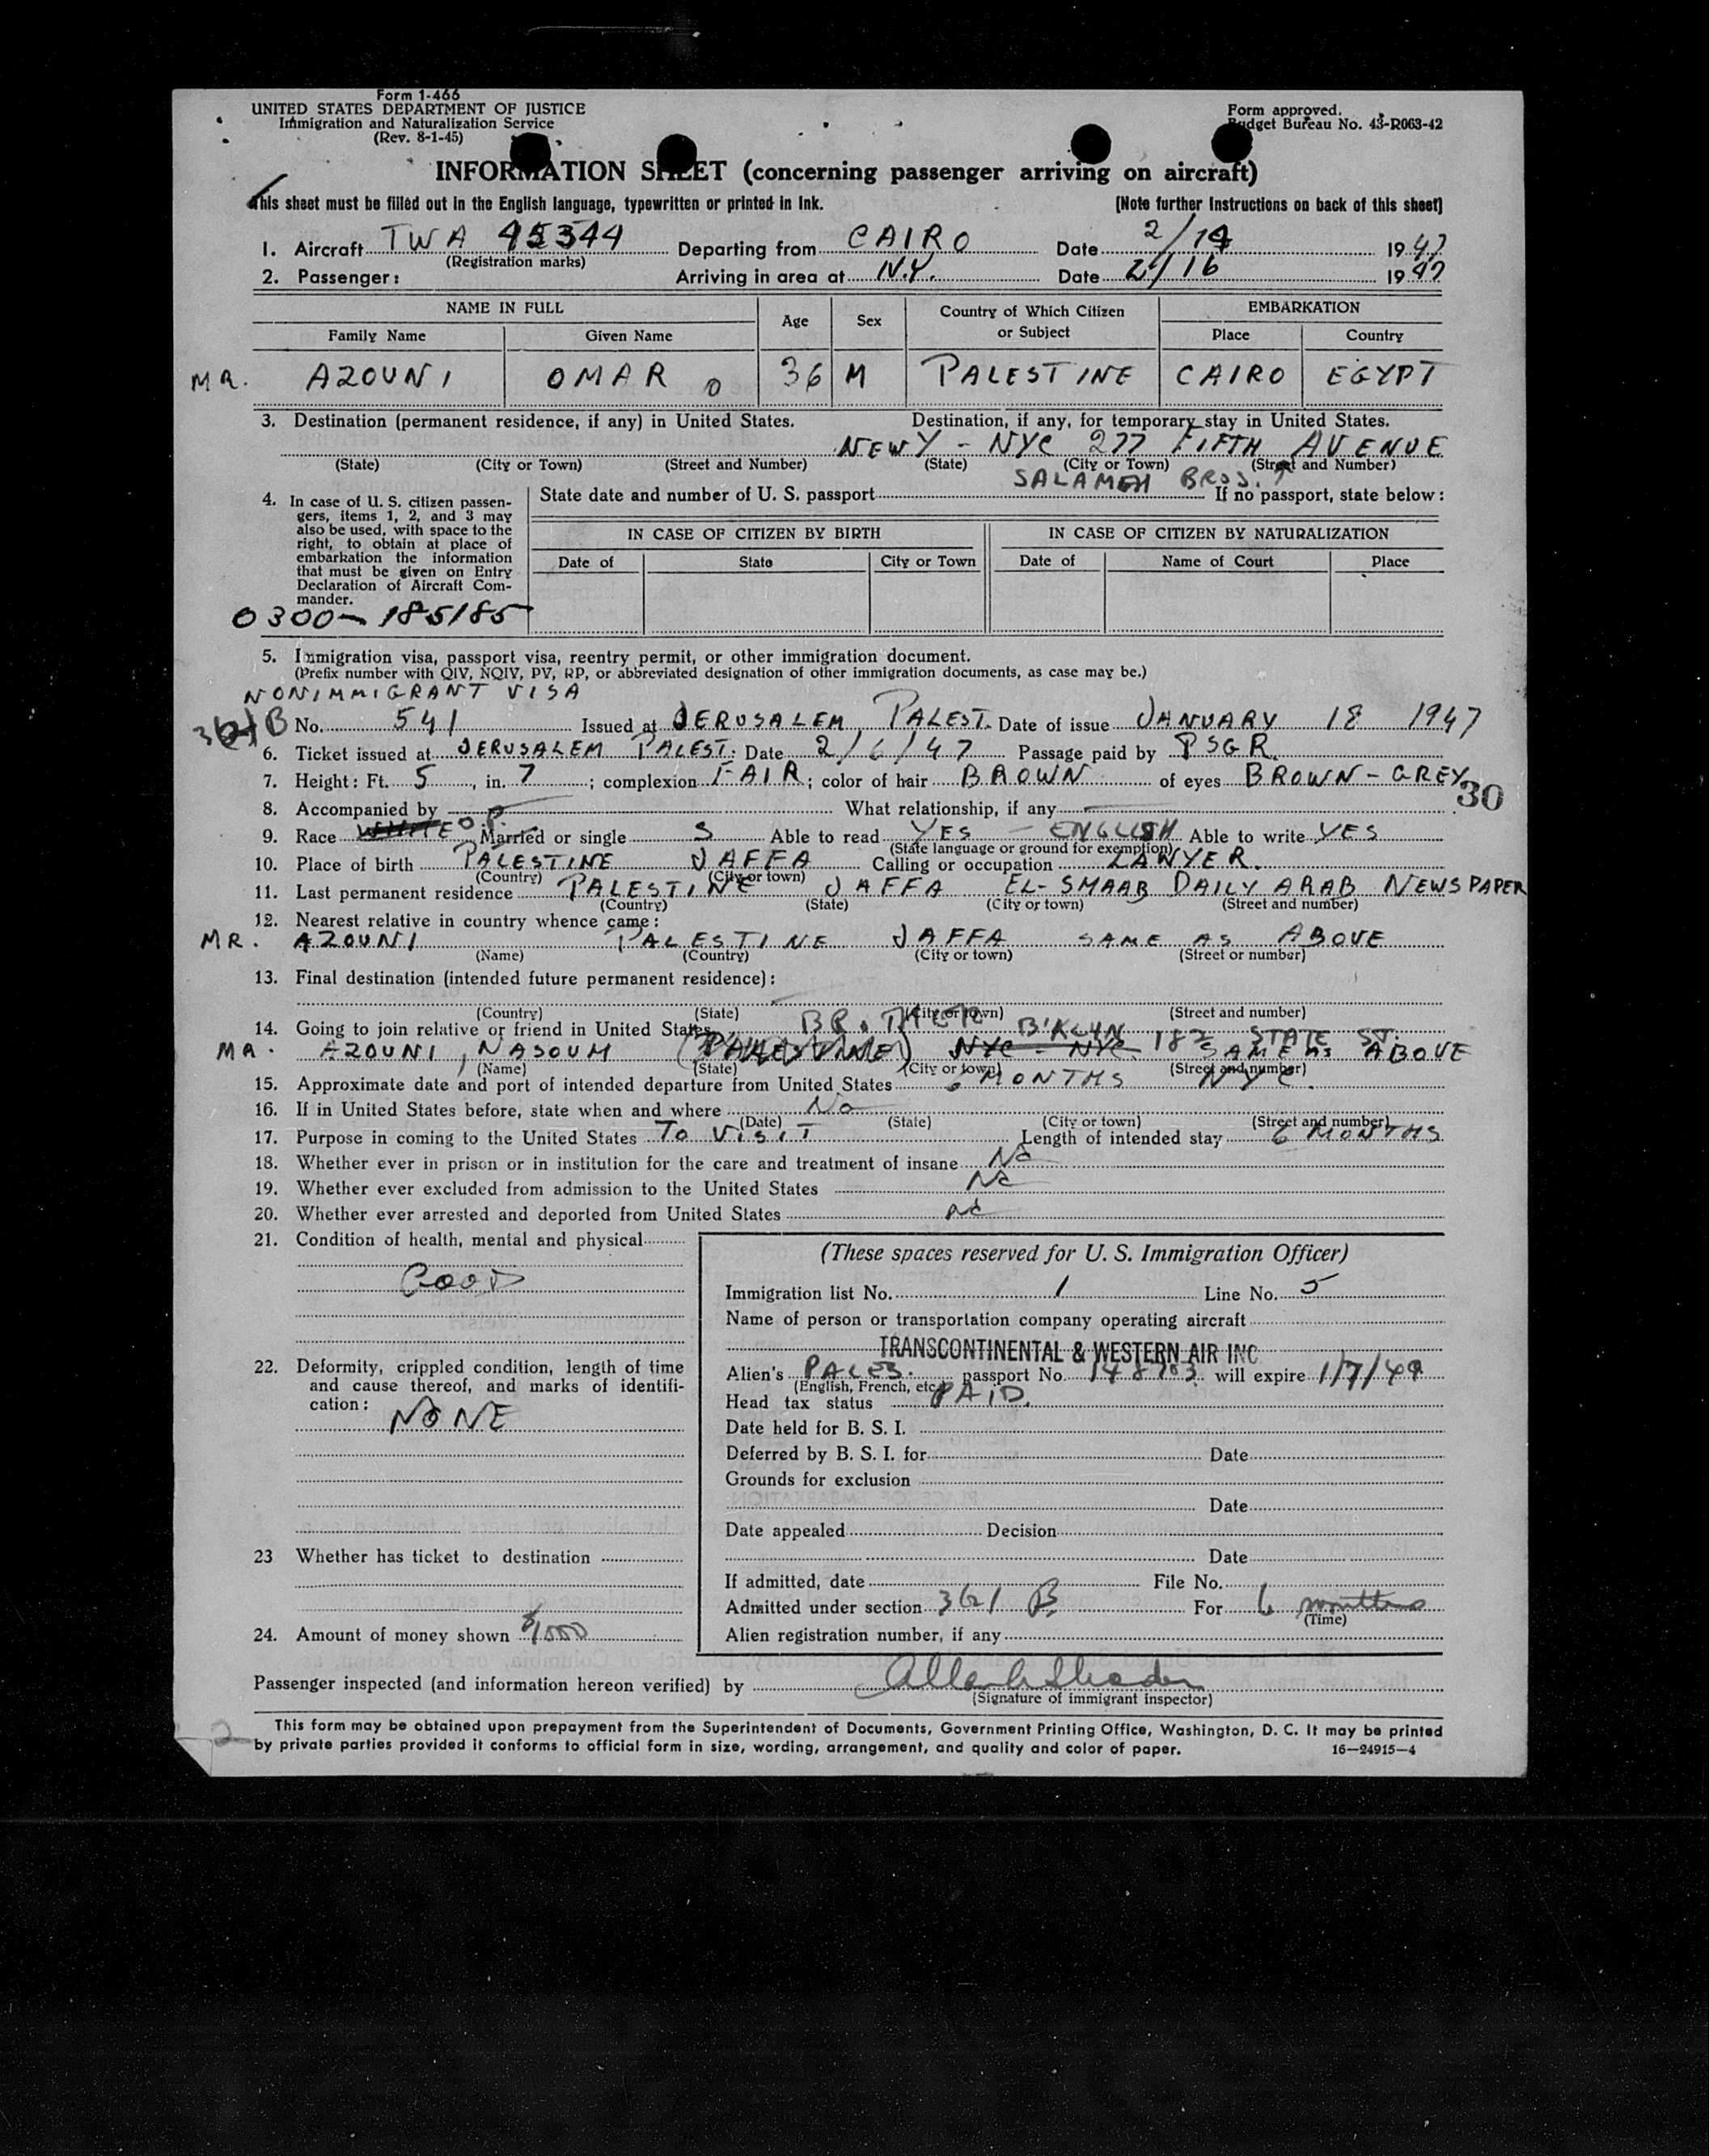 Form 1-466
UNITED STATES DEPARTMENT OF JUSTICE
Immigration and Naturalization Service
(Rev. 8-1-45)
Form approved.
Budget Bureau No. 43-R063-42
INFORMATION SHEET (concerning passenger arriving on aircraft)
This sheet must be filled out in the English language, typewritten or printed in ink. [Note further instructions on back of this sheet]
1. Aircraft TWA 45344 Departing from CAIRO Date 2/14 1947
(Registration marks)
2. Passenger: Arriving in area at N.Y. Date 2/16 1947
NAME IN FULL Age Sex Country of Which Citizen or Subject EMBARKATION
Family Name Given Name Place Country
MR. AZOUNI OMAR O 36 M PALESTINE CAIRO EGYPT
3. Destination (permanent residence, if any) in United States. Destination, if any, for temporary stay in United States.
NEW Y - NYC 277 FIFTH AVENUE
(State) (City or Town) (Street and Number) (State) (City or Town) (Street and Number)
SALAMEH BROS.
4. In case of U. S. citizen passengers, items 1, 2, and 3 may also be used, with space to the right, to obtain at place of embarkation the information that must be given on Entry Declaration of Aircraft Commander.
State date and number of U. S. passport If no passport, state below:
IN CASE OF CITIZEN BY BIRTH IN CASE OF CITIZEN BY NATURALIZATION
Date of State City or Town Date of Name of Court Place
0300-185185
5. Immigration visa, passport visa, reentry permit, or other immigration document.
(Prefix number with QIV, NQIV, PV, RP, or abbreviated designation of other immigration documents, as case may be.)
NONIMMIGRANT VISA
No. 541 Issued at JERUSALEM PALEST. Date of issue JANUARY 18 1947
6. Ticket issued at JERUSALEM PALEST. Date 2/6/47 Passage paid by PSGR.
7. Height: Ft. 5, in. 7; complexion FAIR; color of hair BROWN of eyes BROWN-GREY
30
8. Accompanied by What relationship, if any
9. Race WHITE Married or single S Able to read YES - ENGLISH Able to write YES
(State language or ground for exemption)
10. Place of birth PALESTINE JAFFA Calling or occupation LAWYER.
(Country) (City or town)
11. Last permanent residence PALESTINE JAFFA EL-SMAAB DAILY ARAB NEWSPAPER
(Country) (State) (City or town) (Street and number)
12. Nearest relative in country whence came:
MR. AZOUNI PALESTINE JAFFA SAME AS ABOVE
(Name) (Country) (City or town) (Street or number)
13. Final destination (intended future permanent residence):
(Country) (State) (City or town) (Street and number)
14. Going to join relative or friend in United States BROTHER B'KLYN 182 STATE ST.
MR. AZOUNI, NASOUH (PALESTINE) NYC - NYC SAME AS ABOVE
(Name) (State) (City or town) (Street and number)
15. Approximate date and port of intended departure from United States 6 MONTHS NYC.
16. If in United States before, state when and where No
(Date) (State) (City or town) (Street and number)
17. Purpose in coming to the United States TO VISIT Length of intended stay 6 MONTHS
18. Whether ever in prison or in institution for the care and treatment of insane No
19. Whether ever excluded from admission to the United States No
20. Whether ever arrested and deported from United States No
21. Condition of health, mental and physical
GOOD
22. Deformity, crippled condition, length of time and cause thereof, and marks of identification:
NONE
23 Whether has ticket to destination
24. Amount of money shown $1000
(These spaces reserved for U. S. Immigration Officer)
Immigration list No. 1 Line No. 5
Name of person or transportation company operating aircraft
TRANSCONTINENTAL & WESTERN AIR INC
Alien's PALES. passport No. 148783 will expire 1/7/49
(English, French, etc.)
Head tax status PAID.
Date held for B. S. I.
Deferred by B. S. I. for Date
Grounds for exclusion
Date
Date appealed Decision
Date
If admitted, date File No.
Admitted under section 3(2) B For 6 months
(Time)
Alien registration number, if any
Passenger inspected (and information hereon verified) by
(Signature of immigrant inspector)
This form may be obtained upon prepayment from the Superintendent of Documents, Government Printing Office, Washington, D. C. It may be printed
by private parties provided it conforms to official form in size, wording, arrangement, and quality and color of paper. 16—24915-4